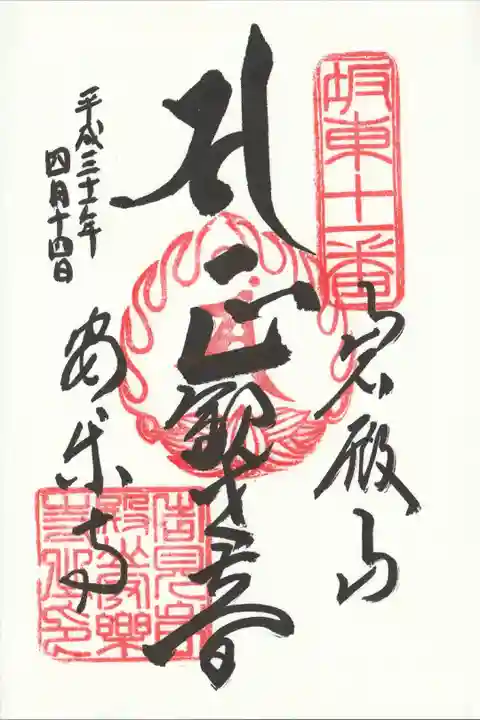 坂東十一番
岩殿山
正観世音
平成三十一年
四月十四日
安楽寺